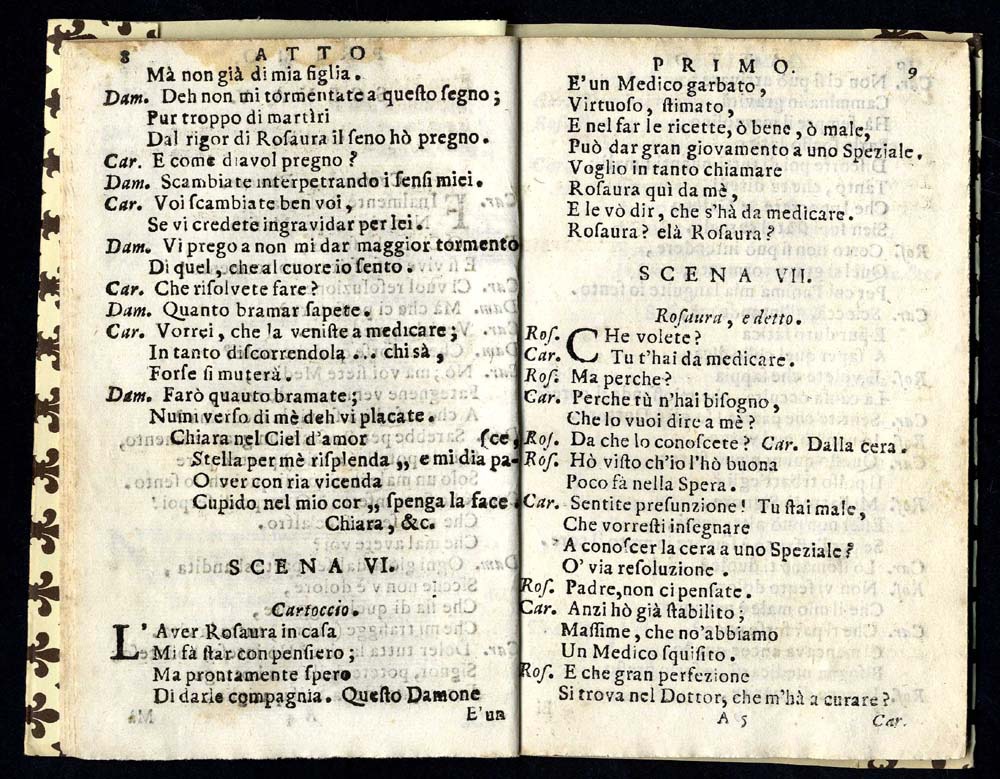 8 ATTO
Mà non già di mia figlia.
Dam. Deh non mi tormentate a questo segno;
Pur troppo di martìri
Dal rigor di Rosaura il seno hò pregno.
Car. E come diavol pregno?
Dam. Scambiate interpetrando i sensi miei.
Car. Voi scambiate ben voi,
Se vi credete ingravidar per lei.
Dam. Vi prego a non mi dar maggior tormento
Di quel, che al cuore io sento.
Car. Che risolvete fare?
Dam. Quanto bramar sapete.
Car. Vorrei, che la veniste a medicare;
In tanto discorrendola ... chi sà,
Forse si muterà.
Dam. Farò quauto bramate;
Numi verso di mè deh vi placate.
Chiara nel Ciel d'amor [sce,
Stella per mè risplenda „ e mi dia pa-
O ver con ria vicenda
Cupido nel mio cor „ spenga la face.
Chiara, &c.
SCENA VI.
Cartoccio.
L'Aver Rosaura in casa
Mi fà star con pensiero;
Ma prontamente spero
Di darle compagnia. Questo Damone
E'un
PRIMO. 9
E'un Medico garbato,
Virtuoso, stimato,
E nel far le ricette, ò bene, ò male,
Può dar gran giovamento a uno Speziale.
Voglio in tanto chiamare
Rosaura quì da mè,
E le vò dir, che s'hà da medicare.
Rosaura? elà Rosaura?
SCENA VII.
Rosaura, e detto.
Ros. CHe volete?
Car. Tu t'hai da medicare.
Ros. Ma perche?
Car. Perche tù n'hai bisogno,
Che lo vuoi dire a mè?
Ros. Da che lo conoscete? Car. Dalla cera.
Ros. Hò visto ch'io l'hò buona
Poco fà nella Spera.
Car. Sentite presunzione! Tu stai male,
Che vorresti insegnare
A conoscer la cera a uno Speziale?
O' via resoluzione.
Ros. Padre, non ci pensate.
Car. Anzi hò già stabilito;
Massime, che no'abbiamo
Un Medico squisito.
Ros. E che gran perfezione
Si trova nel Dottor, che m'hà a curare?
A 5 Car.